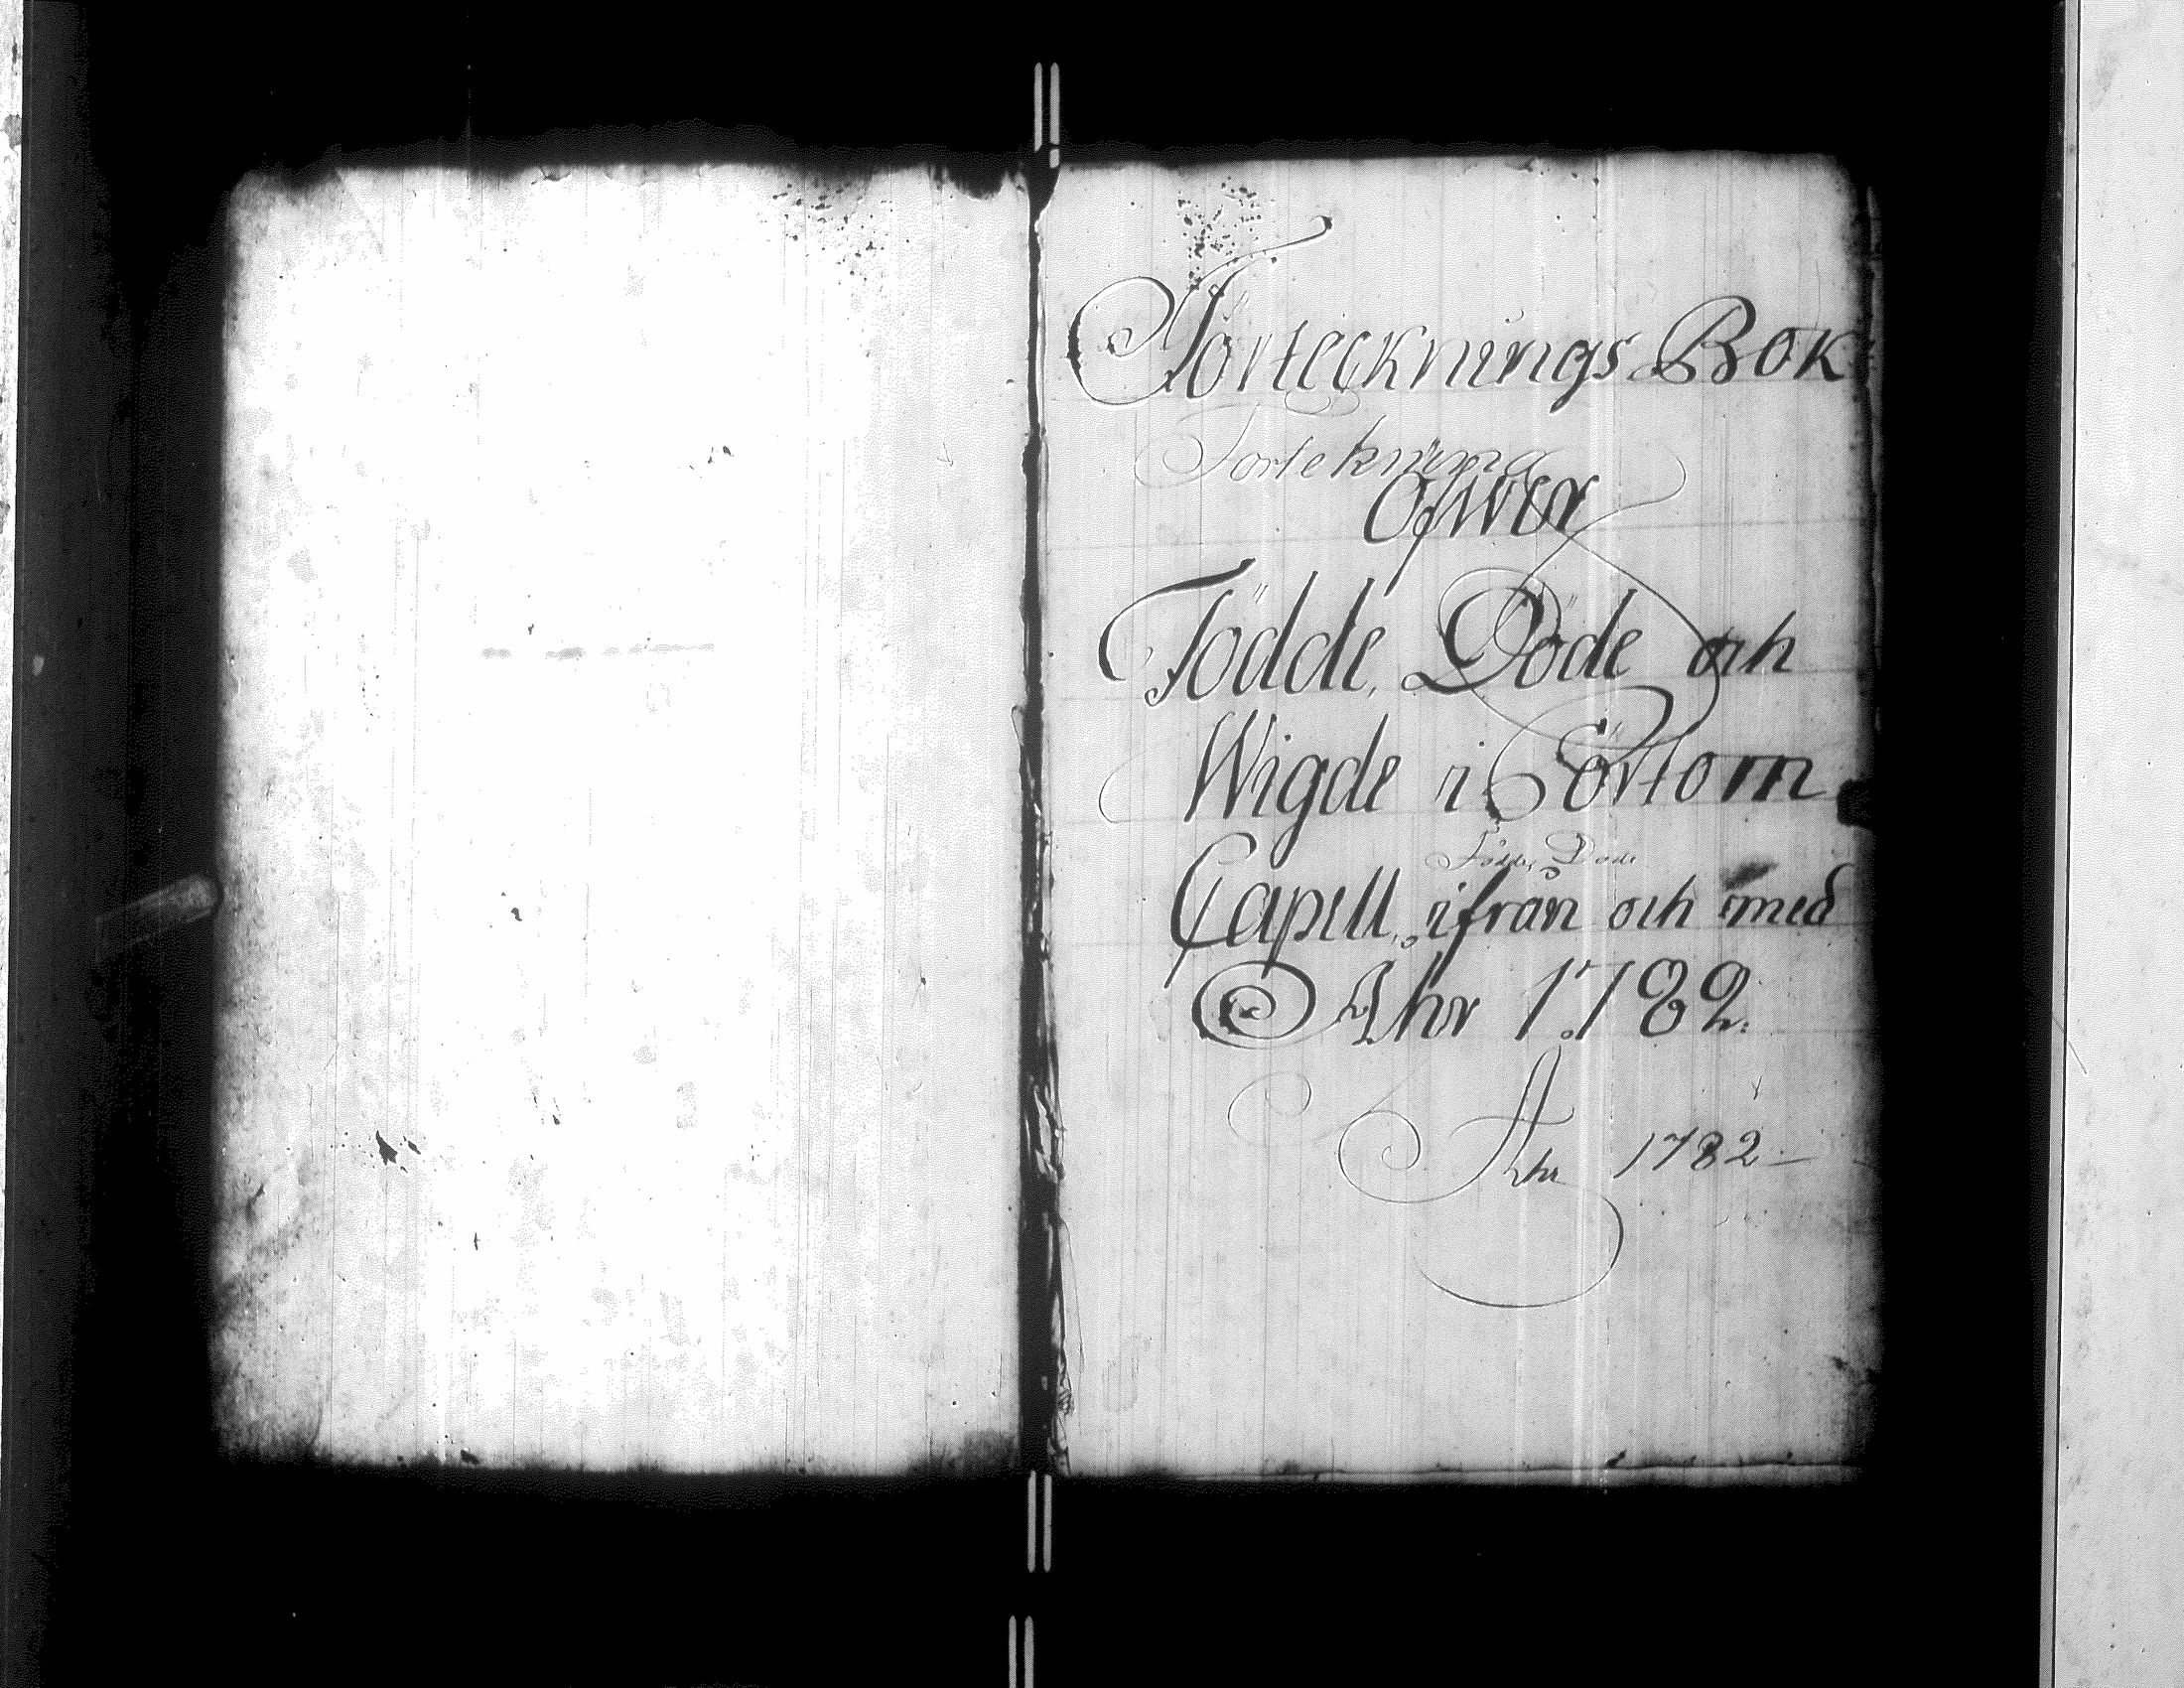 Förtecknings Bok
Forteknina
Ofwer
Födde, Döde och
Wigde iÖrtom
Födde, Döde
Capell, ifrån och med
Ahr 1782.
Ahr 1782